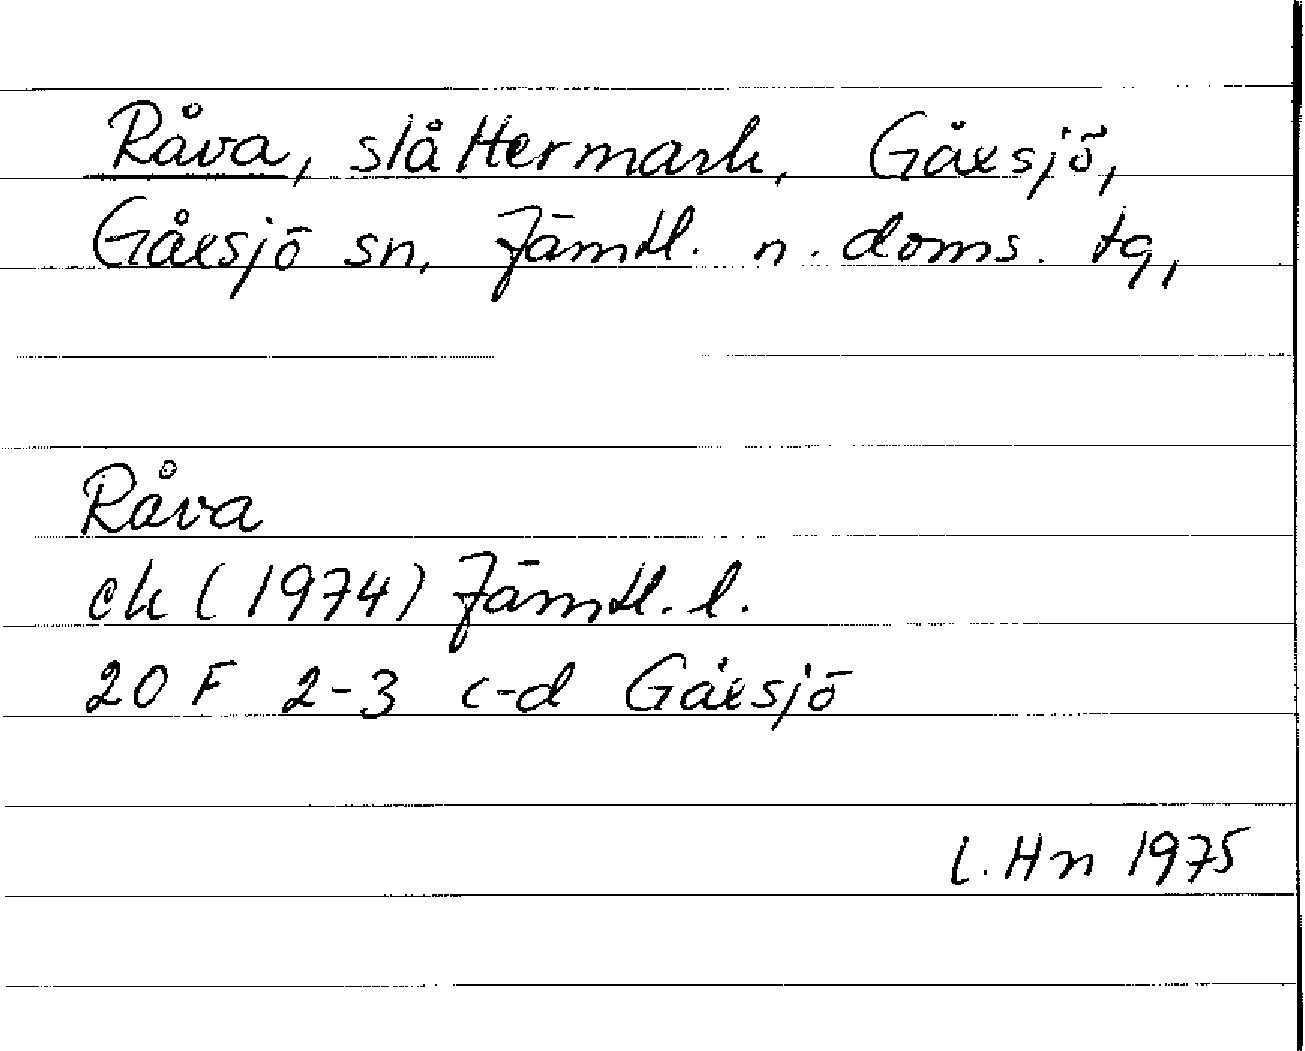 Råva, slåttermark, Gåxsjö,
Gåxsjö sn, Jämtl. n. doms. tg,
Råva
ek (1974) Jämtl. l.
20 F 2-3 c-d Gåxsjö
L. Hn 1975